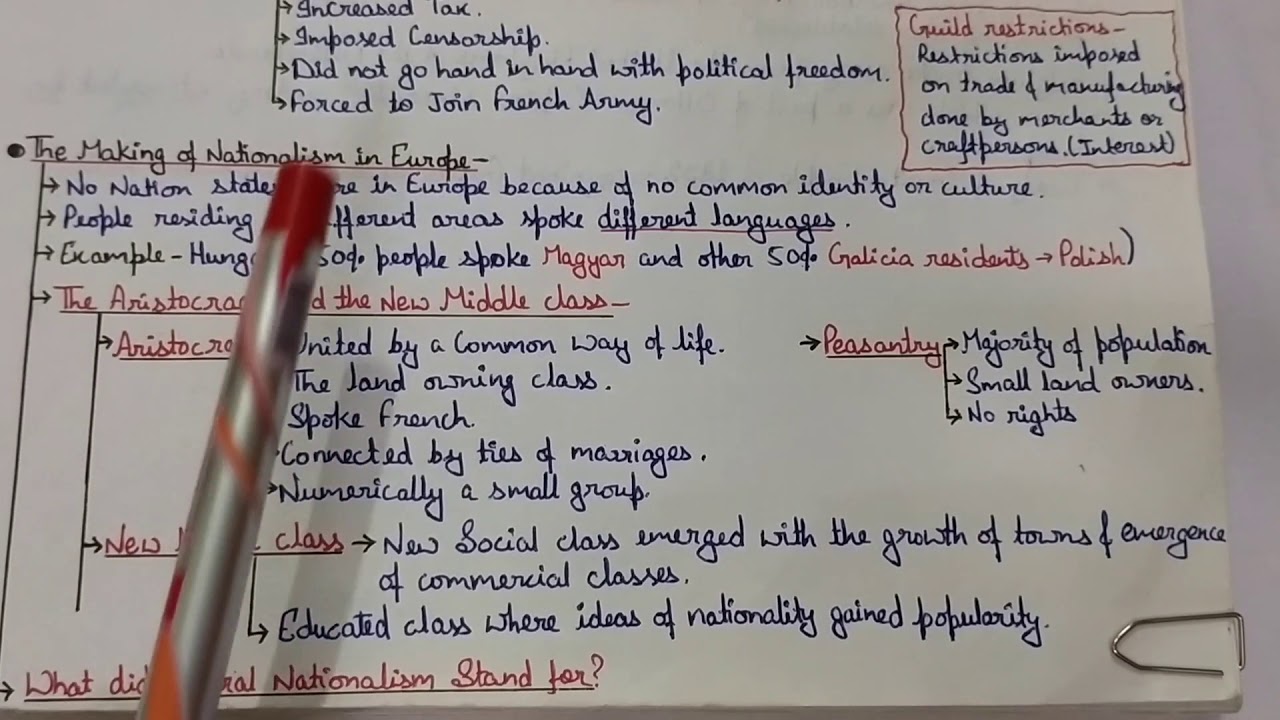 Increased Tax.
Imposed Censorship.
Did not go hand in hand with political freedom.
Forced to Join French Army.
Guild restrictions-
Restrictions imposed
on trade & manufacturing
done by merchants or
craftpersons. (Interest)
The Making of Nationalism in Europe-
No Nation in Europe because of no common identity or culture.
People residing areas spoke different languages.
Example - 50% people spoke Magyar and other 50% Galicia residents → Polish)
The the New Middle class-
United by a Common way of life.
The land owning class.
Spoke French.
Connected by ties of marriages.
Numerically a small group.
→ Peasantry → Majority of population
→ Small land owners.
→ No rights
New class → New Social class emerged with the growth of towns & emergence
of commercial classes.
Educated class where ideas of nationality gained popularity.
→ What Nationalism Stand for?